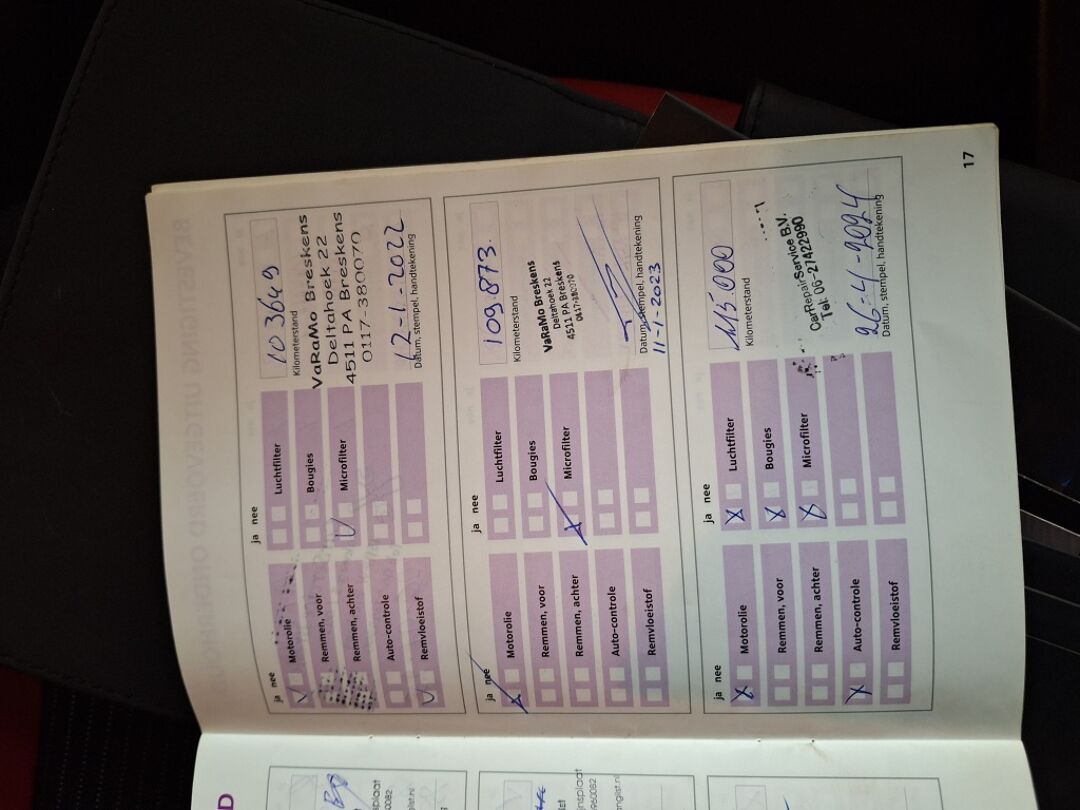 ja nee
Motorolie
Remmen, voor
Remmen, achter
Auto-controle
Remvloeistof
ja nee
Luchtfilter
Bougies
Microfilter
103649
Kilometerstand
VaRaMo Breskens
Deltahoek 22
4511 PA Breskens
0117-380070
12-1-2022
Datum, stempel, handtekening
ja nee
Motorolie
Remmen, voor
Remmen, achter
Auto-controle
Remvloeistof
ja nee
Luchtfilter
Bougies
Microfilter
109.873.
Kilometerstand
VaRaMo Breskens
Deltahoek 22
4511 PA Breskens
0117-380070
Datum, stempel, handtekening
11-1-2023
ja nee
Motorolie
Remmen, voor
Remmen, achter
Auto-controle
Remvloeistof
ja nee
Luchtfilter
Bougies
Microfilter
115.000
Kilometerstand
CarRepairService B.V.
Tel: 06-27422990
26-4-2024
Datum, stempel, handtekening
17